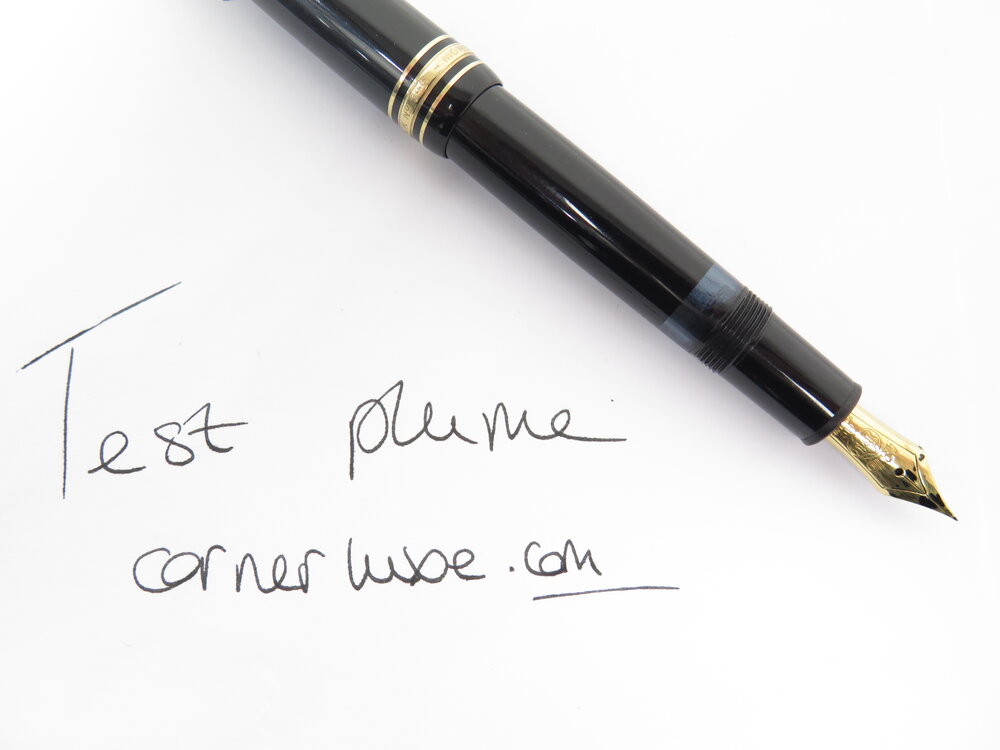 Test plume
cornerluxe.com